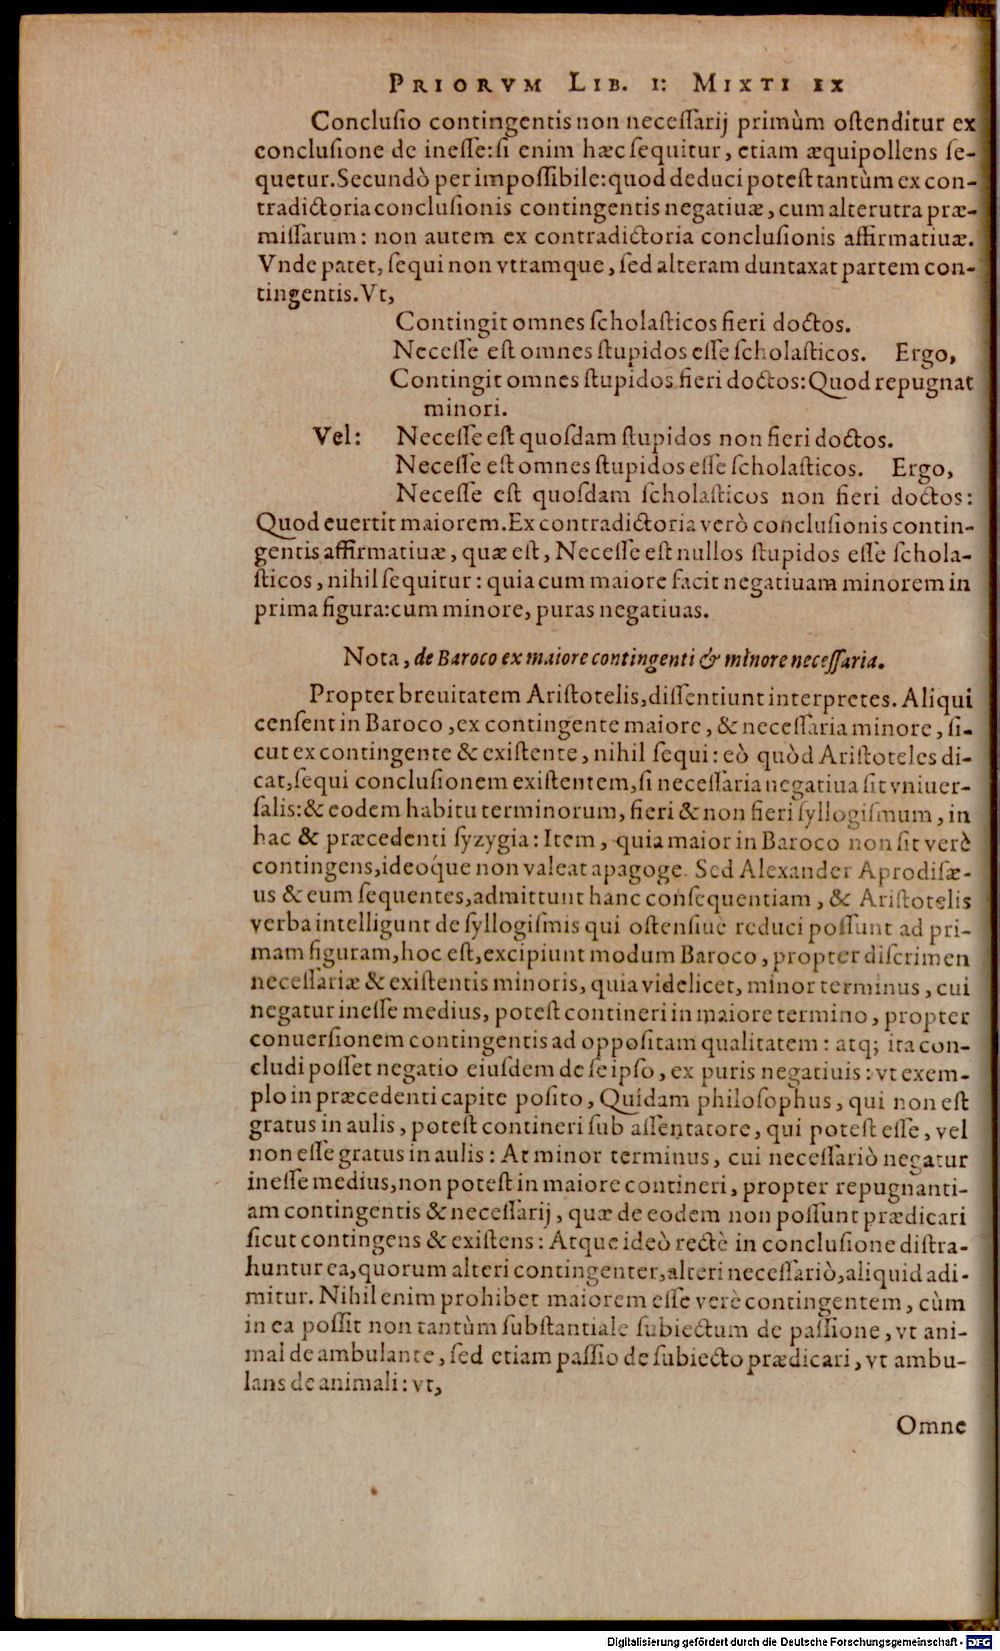 PRIORVM LIB. I: MIXTI EX
Conclusio contingentis non necessarij primùm ostenditur ex
conclusione de inesse: si enim hæc sequitur, etiam æquipollens se-
quetur. Secundò per impossibile: quod deduci potest tantùm ex con-
tradictoria conclusionis contingentis negatiuæ, cum alterutra præ-
missarum: non autem ex contradictoria conclusionis affirmatiuæ.
Vnde patet, sequi non vtramque, sed alteram duntaxat partem con-
tingentis. Vt,
Contingit omnes scholasticos fieri doctos.
Necesse est omnes stupidos esse scholasticos. Ergo,
Contingit omnes stupidos fieri doctos: Quod repugnat
minori.
Vel: Necesse est quosdam stupidos non fieri doctos.
Necesse est omnes stupidos esse scholasticos. Ergo,
Necesse est quosdam scholasticos non fieri doctos:
Quod euertit maiorem. Ex contradictoria verò conclusionis contin-
gentis affirmatiuæ, quæ est, Necesse est nullos stupidos esse schola-
sticos, nihil sequitur: quia cum maiore facit negatiuam minorem in
prima figura: cum minore, puras negatiuas.
Nota, de Baroco ex maiore contingenti & minore necessaria.
Propter breuitatem Aristotelis, dissentiunt interpretes. Aliqui
censent in Baroco, ex contingente maiore, & necessaria minore, si-
cut ex contingente & existente, nihil sequi: eò quòd Aristoteles di-
cat, sequi conclusionem existentem, si necessaria negatiua sit vniuer-
salis: & eodem habitu terminorum, fieri & non fieri syllogismum, in
hac & præcedenti syzygia: Item, quia maior in Baroco non sit verè
contingens, ideoq́ue non valeat apagoge. Sed Alexander Aprodisæ-
us & eum sequentes, admittunt hanc consequentiam, & Aristotelis
verba intelligunt de syllogismis qui ostensiuè reduci possunt ad pri-
mam figuram, hoc est, excipiunt modum Baroco, propter discrimen
necessariæ & existentis minoris, quia videlicet, minor terminus, cui
negatur inesse medius, potest contineri in maiore termino, propter
conuersionem contingentis ad oppositam qualitatem: atq; ita con-
cludi posset negatio eiusdem de seipso, ex puris negatiuis: vt exem-
plo in præcedenti capite posito, Quidam philosophus, qui non est
gratus in aulis, potest contineri sub assentatore, qui potest esse, vel
non esse gratus in aulis: At minor terminus, cui necessariò negatur
inesse medius, non potest in maiore contineri, propter repugnanti-
am contingentis & necessarij, quæ de eodem non possunt prædicari
sicut contingens & existens: Atque ideò rectè in conclusione distra-
huntur ea, quorum alteri contingenter, alteri necessariò, aliquid adi-
mitur. Nihil enim prohibet maiorem esse verè contingentem, cùm
in ea possit non tantùm substantiale subiectum de passione, vt ani-
mal de ambulante, sed etiam passio de subiecto prædicari, vt ambu-
lans de animali: vt,
Omne
Digitalisierung gefördert durch die Deutsche Forschungsgemeinschaft - DFG